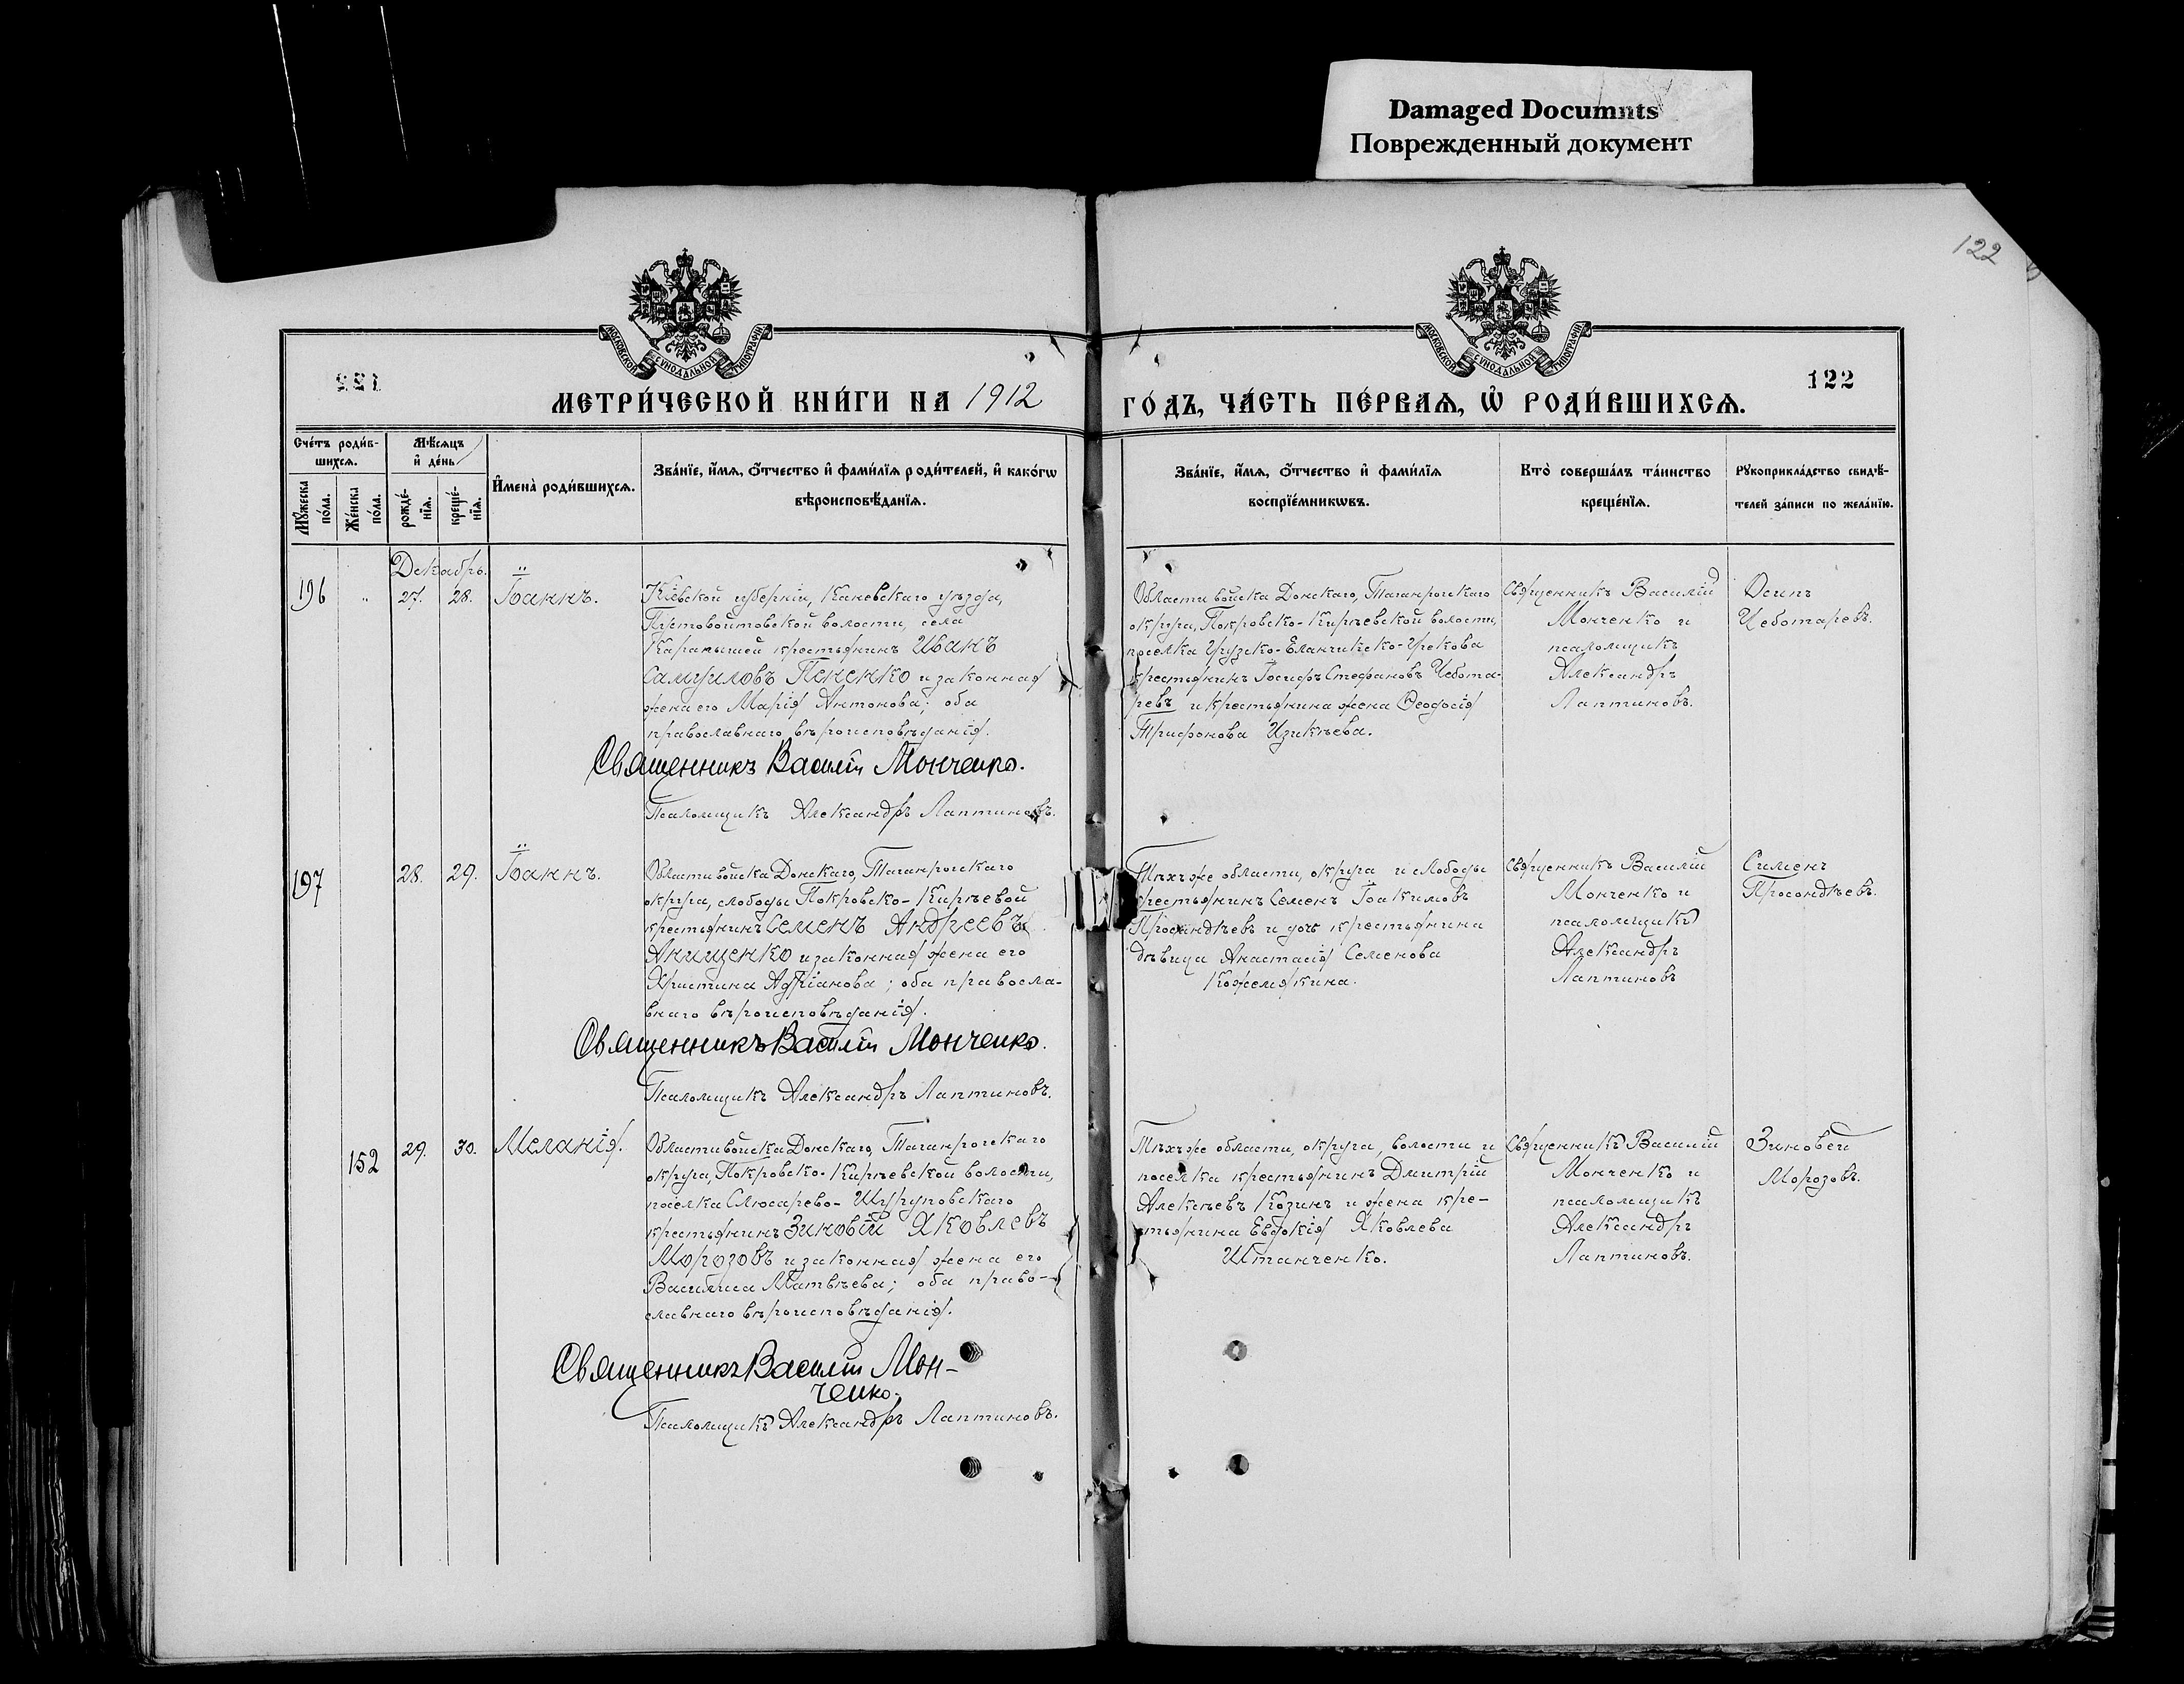 Damaged Documnts
Поврежденный документ
122
МОСКОВСКОЙ СѴНОДАЛЬНОЙ ТИПОГРАФІИ
МОСКОВСКОЙ СѴНОДАЛЬНОЙ ТИПОГРАФІИ
122
МЕТРИ́ЧЕСКОЙ КНИ́ГИ НА 1912
ГО́ДЪ, ЧА́СТЬ ПЕ́РВАѦ, Ѡ҆ РОДИ́ВШИХСѦ.
Сче́тъ роди́в-
шихсѧ.
Мѣ́сѧцъ
и҆ де́нь
Мꙋ́жеска по́ла.
Же́нска по́ла.
рожде́-
нїѧ.
креще́-
нїѧ.
И҆мена̀ роди́вшихсѧ.
Зва́нїе, и҆́мѧ, ѻ҆́тчество и҆ фами́лїѧ роди́телей, и҆ како́гѡ
вѣроисповѣ́данїѧ.
Зва́нїе, и҆́мѧ, ѻ҆́тчество и҆ фами́лїѧ
воспрїе́мникѡвъ.
Кто̀ соверша́лъ та́инство
креще́нїѧ.
Рꙋкоприкла́дство свидѣ́-
телей за́писи по жела́нїю.
Декабрь.
196 " 27. 28. Іоаннъ.
Кіевской губерніи, Каневскаго уѣзда,
Пустовойтовской волости, села
Карапышей крестьянинъ Иванъ
Самуиловъ Пененко и законная
жена его Марія Антонова; оба
православнаго вѣроисповѣданія.
Священникъ Василій Монченко.
Псаломщикъ Александръ Лаптиновъ.
Области войска Донскаго, Таганрогскаго
округа, Покровско-Кирѣевской волости,
поселка Грузско-Еланчикско-Грекова
крестьянинъ Іосифъ Стефановъ Чебота-
ревъ и крестьянина жена Ѳеодосія
Трифонова Изикѣева.
Священникъ Василій
Монченко и
псаломщикъ
Александръ
Лаптиновъ.
Осипъ
Чеботаревъ.
197 28. 29. Іоаннъ.
Области войска Донскаго, Таганрогскаго
округа, слободы Покровско-Кирѣевой
крестьянинъ Семенъ Андреевъ
Анищенко и законная жена его
Христина Адріанова; оба правосла-
внаго вѣроисповѣданія.
Священникъ Василій Монченко.
Псаломщикъ Александръ Лаптиновъ.
Тѣхъ же области, округа и слободы
крестьянинъ Семенъ Іоакимовъ
Просандѣевъ и дочь крестьянина
дѣвица Анастасія Семенова
Кожемякина.
Священникъ Василій
Монченко и
псаломщикъ
Александръ
Лаптиновъ
Сименъ
Просондѣевъ.
152 29. 30. Меланія.
Области войска Донскаго, Таганрогскаго
округа, Покровско-Кирѣевской волости,
поселка Слюсарево-Шуруповскаго
крестьянинъ Зиновій Яковлевъ
Морозовъ и законная жена его
Василиса Матвѣева; оба право-
славнаго вѣроисповѣданія.
Священникъ Василій Мон-
ченко.
Псаломщикъ Александръ Лаптиновъ.
Тѣхъ же области, округа, волости и
поселка крестьянинъ Дмитрій
Алексѣевъ Козинъ и жена кре-
стьянина Евдокія Яковлева
Штанченко.
Священникъ Василій
Монченко и
псаломщикъ
Александръ
Лаптиновъ.
Зиновей
Морозовъ.